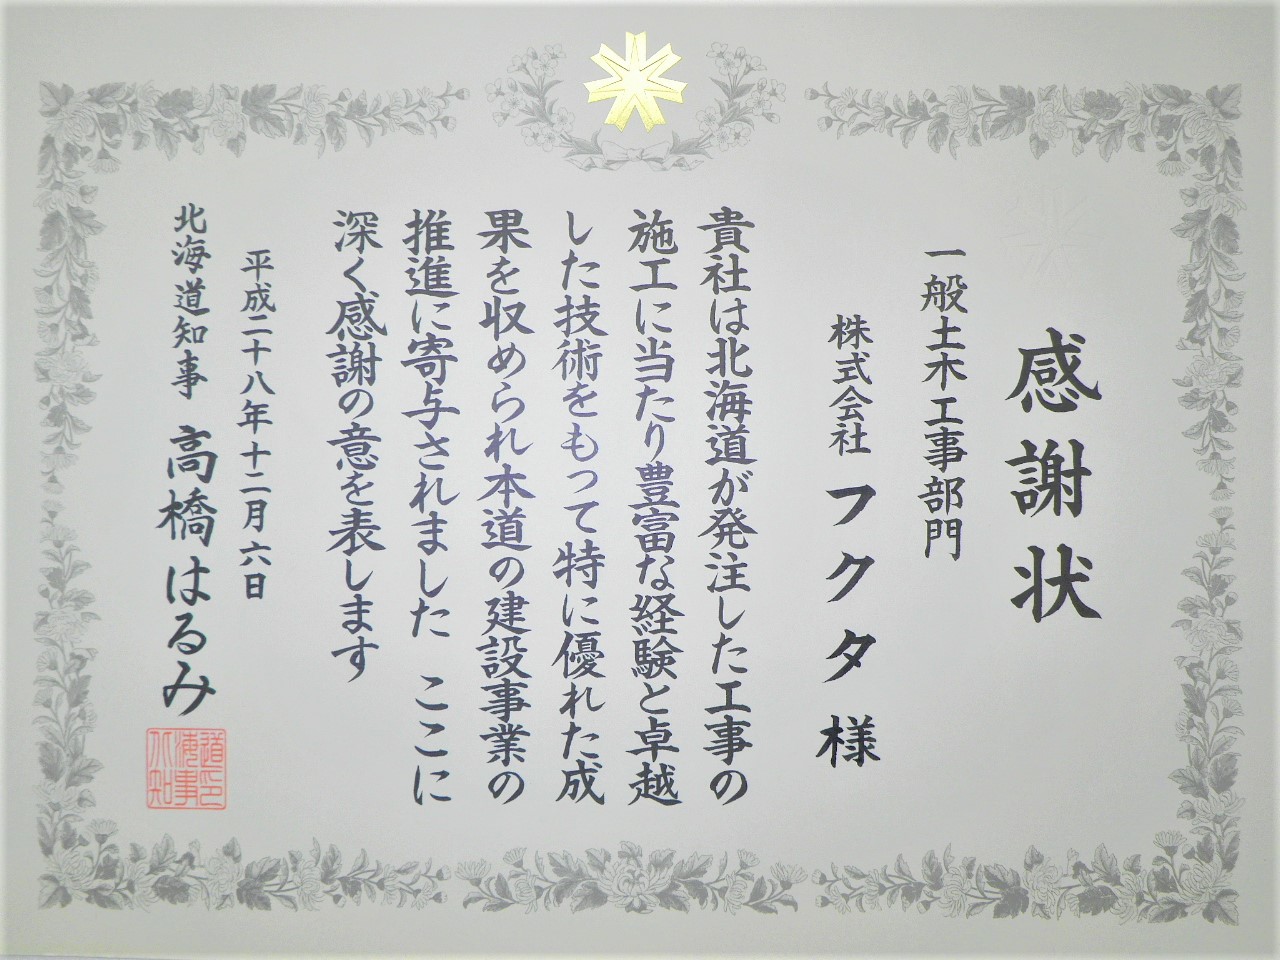 感謝状
一般土木工事部門
株式会社 フクタ 様
貴社は北海道が発注した工事の
施工に当たり豊富な経験と卓越
した技術をもって特に優れた成
果を収められ本道の建設事業の
推進に寄与されました ここに
深く感謝の意を表します
平成二十八年十二月六日
北海道知事 高橋はるみ